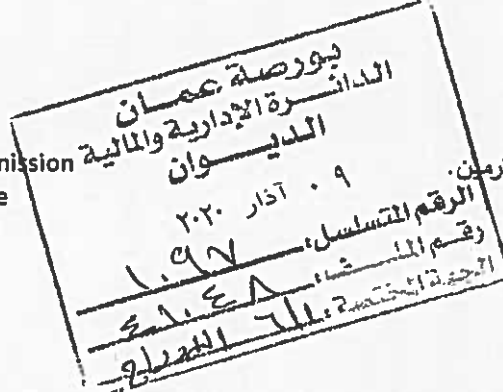 بورصة عمان
الدائرة الإدارية والمالية
الديوان
mission
٠٩ آذار ٢٠٢٠
الرقم المتسلسل: ١٠٩٧
رقم الملف: ٤١٠٤٨
الجهة المختصة: